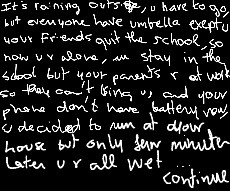 It's raining outside, u have to go,
but everyone have umbrella exept u
your friends quit the school, so
now u r alone, u stay in the
school but your parents r at work
so they can't bring u, and your
phone don't have battery now
u decided to run at your
house but only few minutes
later u r all wet ...
continue